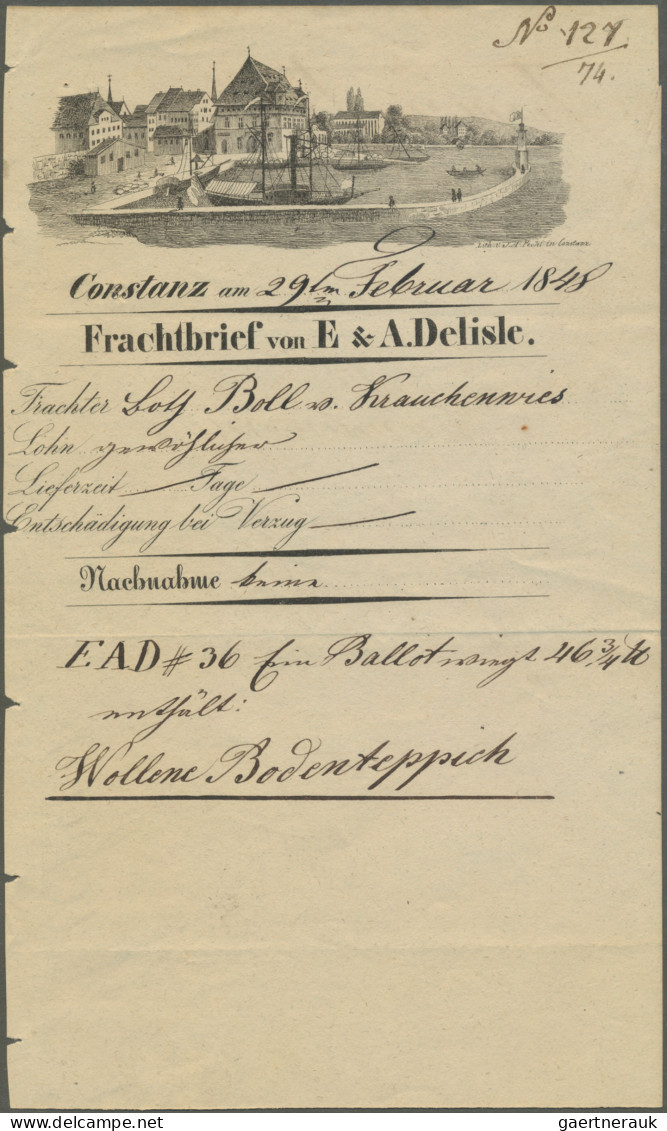 No 127
74.
Lith. v. J. A. Pecht in Constanz
Constanz am 29ten Februar 1848
Frachtbrief von E & A. Delisle.
Frachter Both Boll v. Krauchenwies
Lohn gewöhlicher
Lieferzeit — Tage —
Entschädigung bei Verzug —
Nachnahme keine
E A D # 36 Ein Ballot wiegt 46 3/4 ℔
enthält:
Wollene Bodenteppich
gaertnerauk